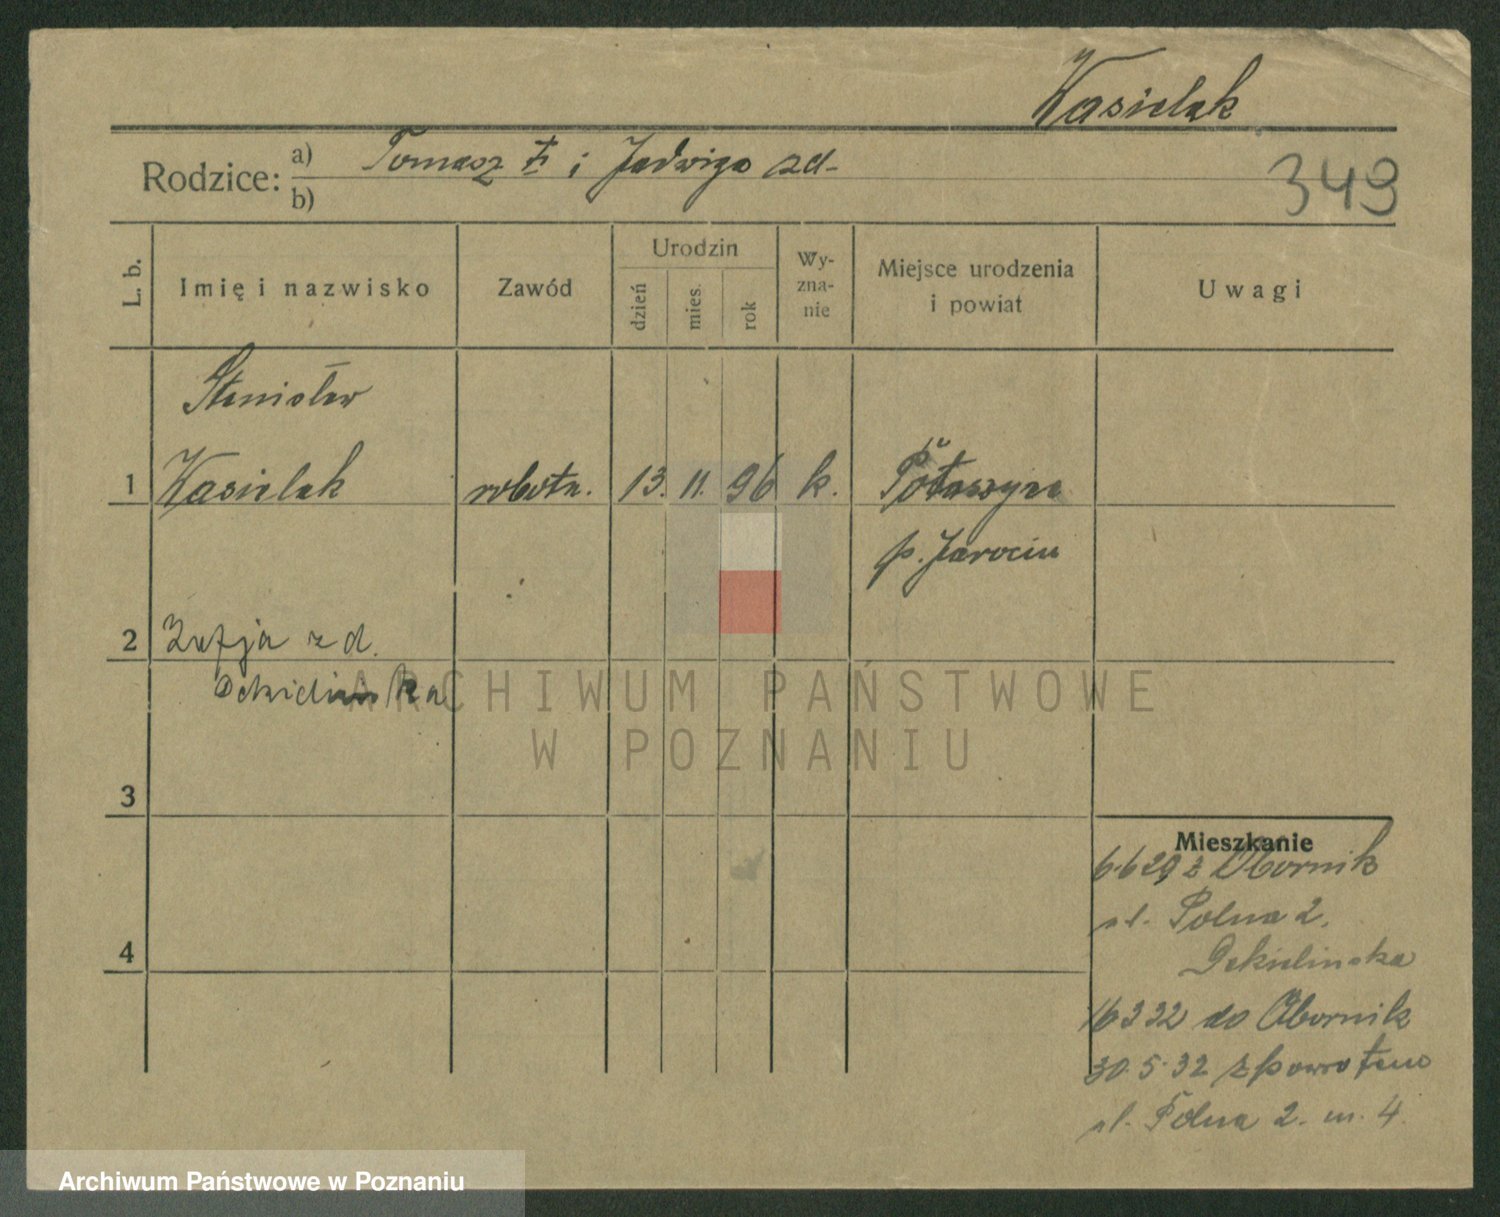 Kasielak
Rodzice: a) Tomasz † i Jadwiga zd-
b)
349
L. b.
Imię i nazwisko
Zawód
Urodzin
dzień
mies.
rok
Wy-
zna-
nie
Miejsce urodzenia
i powiat
Uwagi
Stanisław
1 Kasielak robotn. 13. 11. 96 k. Potaszyce
p. Jarocin
2 Zofja z d.
Dekielinska
3
4
Mieszkanie
6.6 29 z Obornik
ul. Polna 2.
Dekielinska
16 3 32 do Obornik
30.5.32 z powrotem
ul. Polna 2. m. 4.
ARCHIWUM PAŃSTWOWE
W POZNANIU
Archiwum Państwowe w Poznaniu